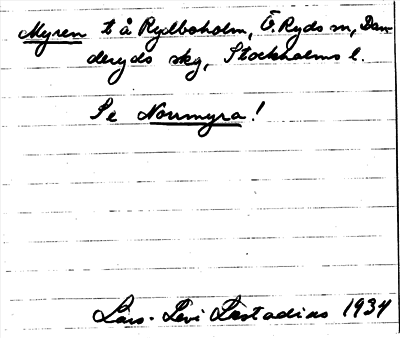 Myren t å Rydboholm, Ö. Ryds sn, Dan-
deryds skg, Stockholms l.
Se Norrmyra!
Lars-Levi Læstadius 1934